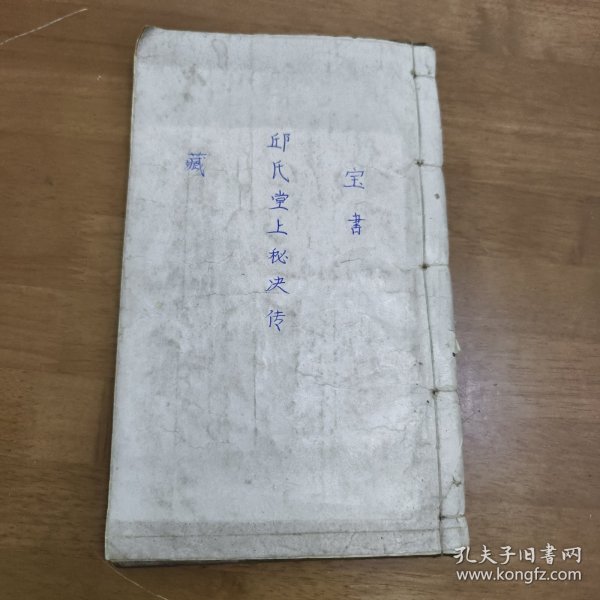 宝書
邱氏堂上秘决传
藏
孔夫子旧書网
www.kongfz.com